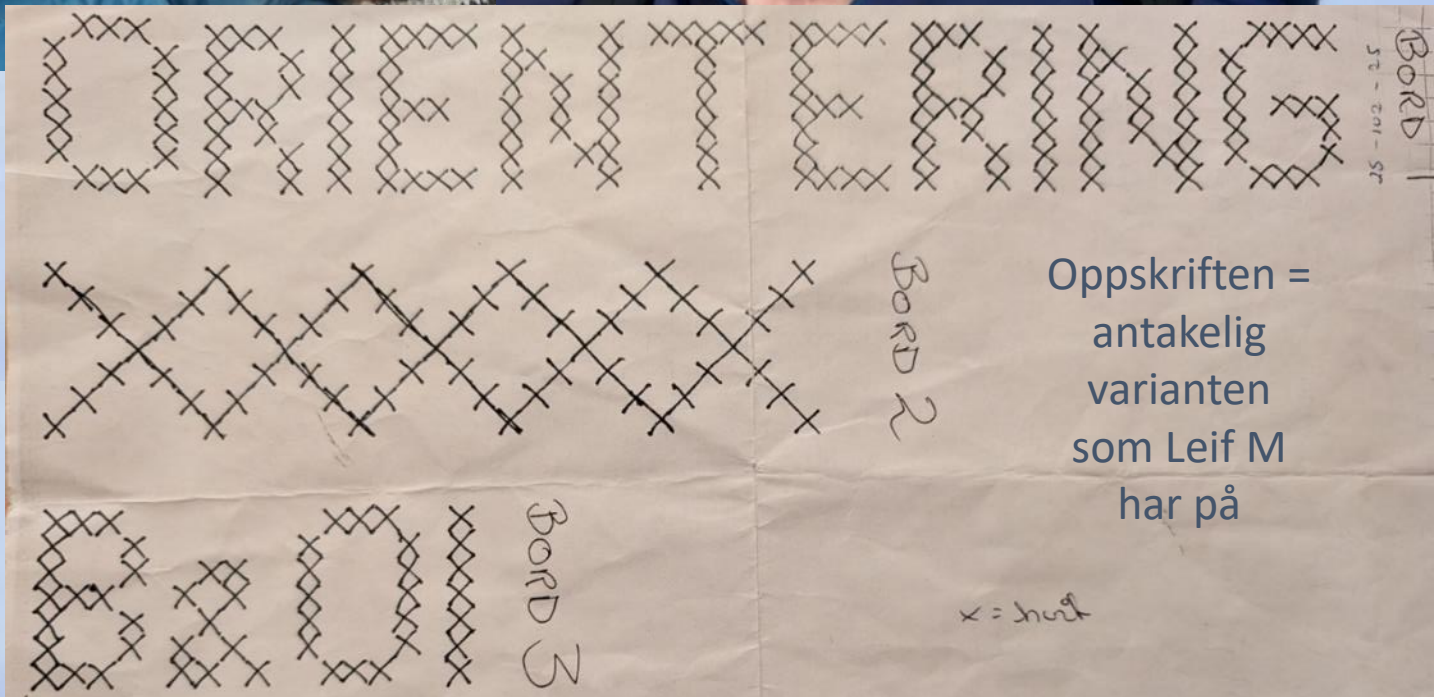 ORIENTERING
BORD 1
25 - 102 - 25
BORD 2
Oppskriften =
antakelig
varianten
som Leif M
har på
BORD 3
x = hvit